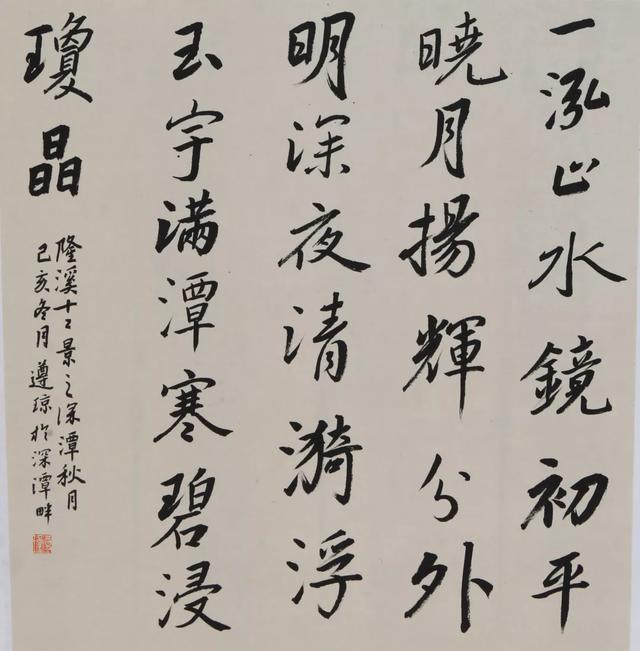 一泓止水鏡初平
曉月揚輝分外
明深夜清漪浮
玉宇满潭寒碧浸
瓊晶
隆溪十二景之深潭秋月
己亥冬月遵琼於深潭畔